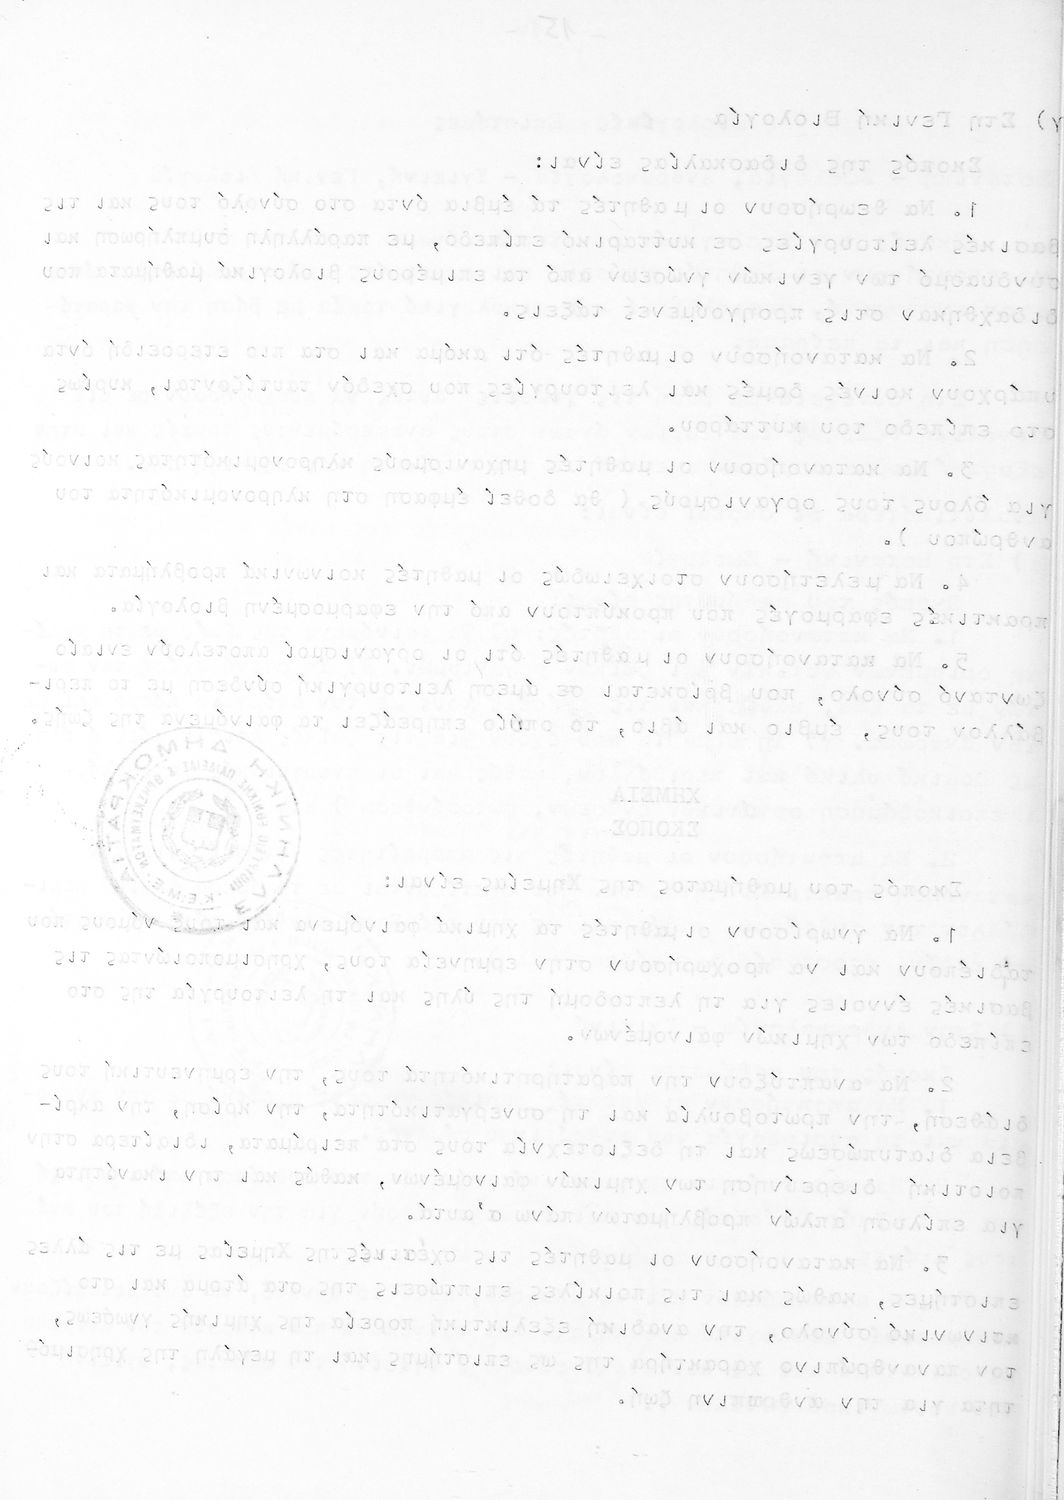 - 15 -
γ) Στη Γενική Βιολογία
Σκοπός της διδασκαλίας είναι:
1. Να θεωρήσουν οι μαθητές τά έμβια όντα στο σύνολό τους και τις
βασικές λειτουργίες σε κυτταρικό επίπεδο, με παράλληλη συμπλήρωση και
συνδυασμό των γενικών γνώσεων από τα επιμέρους βιολογικά μαθήματα που
διδαχθηκαν στις προηγούμενες τάξεις.
2. Να κατανοήσουν οι μαθητές ότι ακόμα και στα πιο ετεροειδή όντα
υπάρχουν κοινές δομές και λειτουργίες που σχεδόν ταυτίζονται, κυρίως
στο επίπεδο του κυττάρου.
3. Να κατανοήσουν οι μαθητές μηχανισμούς κληρονομικότητας κοινούς
για όλους τους οργανισμούς ( θα δοθεί έμφαση στη κληρονομικότητα του
ανθρώπου ).
4. Να μελετήσουν στοιχειωδώς οι μαθητές κοινωνικά προβλήματα και
πρακτικές εφαρμογές που προκύπτουν από την εφαρμοσμένη βιολογία.
5. Να κατανοήσουν οι μαθητές ότι οι οργανισμοί αποτελούν ενιαίο
ζωντανό σύνολο, που βρίσκεται σε άμεση λειτουργική σύνδεση με το περι-
βάλλον τους, έμβιο και άβιο, τό οποίο επηρεάζει τα φαινόμενα της ζωής.
ΕΛΛΗΝΙΚΗ ΔΗΜΟΚΡΑΤΙΑ
Κ.Ε.Μ.Ε.
ΧΗΜΕΙΑ
ΣΚΟΠΟΣ
Σκοπός του μαθήματος της Χημείας είναι:
1. Να γνωρίσουν οι μαθητές τα χημικά φαινόμενα και τους νόμους που
τα διέπουν και να προχωρήσουν στην ερμηνεία τους, χρησιμοποιώντας τις
βασικές έννοιες για τη λεπτοδομή της ύλης και τη λειτουργία της στο
επίπεδο των χημικών φαινομένων.
2. Να αναπτύξουν την παρατηρητικότητά τους, την ερμηνευτική τους
διάθεση, την πρωτοβουλία και τη συνεργατικότητα, την κρίση, την ακρί-
βεια διατυπώσεως και τη δεξιοτεχνία τους στα πειράματα, ιδιαίτερα στην
ποιοτική διερεύνηση των χημικών φαινομένων, καθώς και την ικανότητα
για επίλυση απλών προβλημάτων πάνω σ'αυτά.
3. Να κατανοήσουν οι μαθητές τις σχέσεις της Χημείας με τις άλλες
επιστήμες, καθώς και τις ποικίλες επιπτώσεις της στα άτομα και στο
κοινωνικό σύνολο, την αναδική εξελικτική πορεία της χημικής γνώσεως,
τον πανανθρώπινο χαρακτήρα της ως επιστήμης και τη μεγάλη της χρησιμό-
τητα για την ανθρώπινη ζωή.